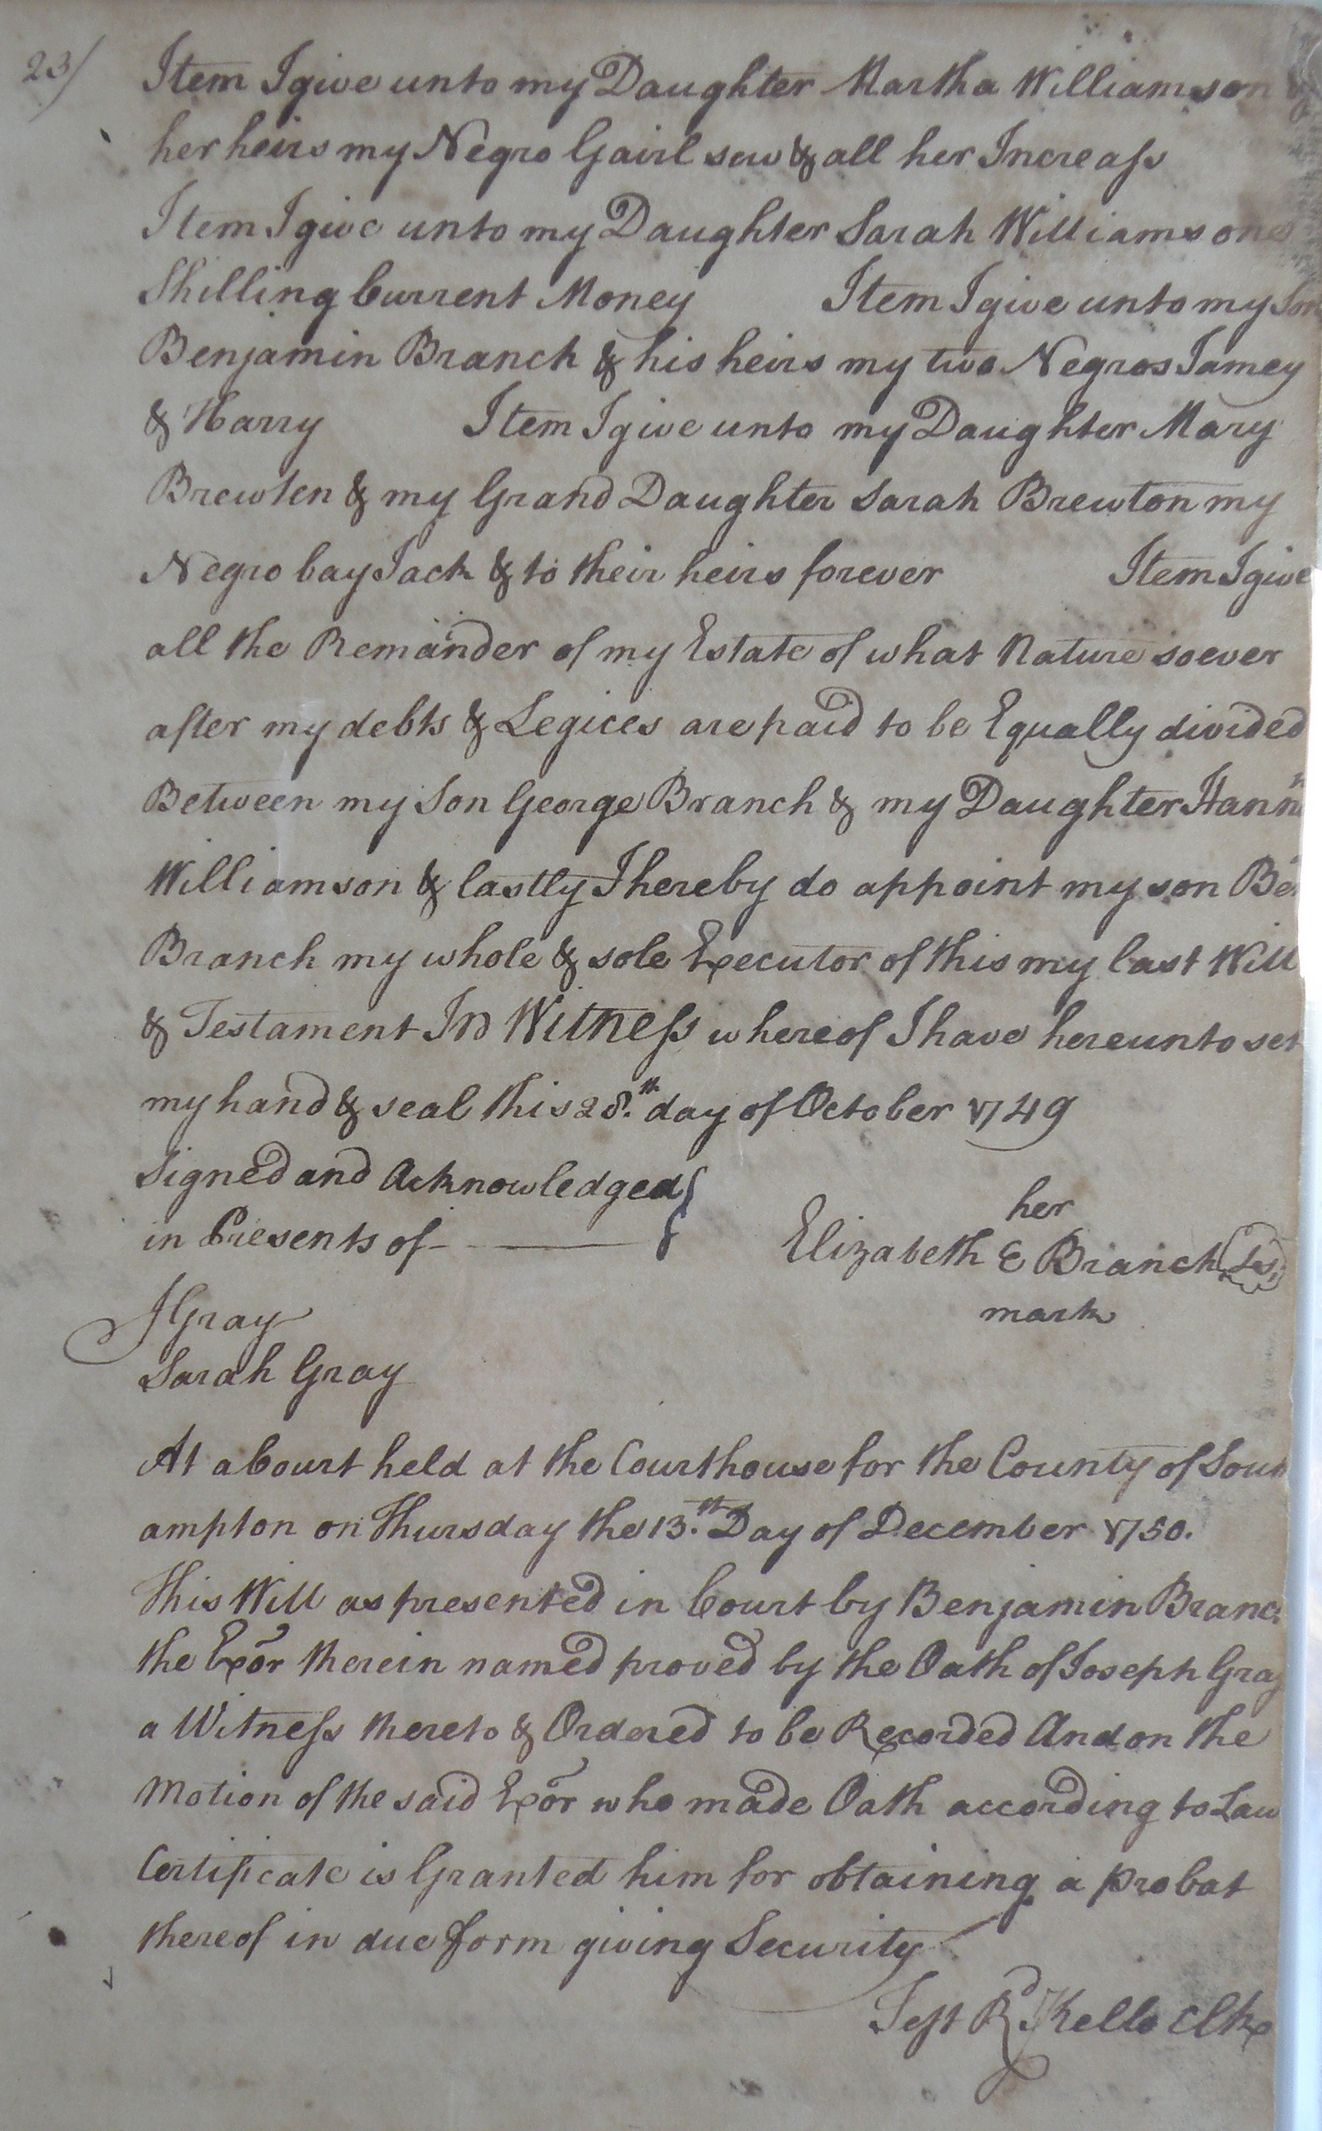 23/
Item I give unto my Daughter Martha Williamson &
her heirs my Negro Gairl sew & all her Increass
Item I give unto my Daughter Sarah Williams one
Shilling Current Money Item I give unto my Son
Benjamin Branch & his heirs my two Negros Jamey
& Harry Item I give unto my Daughter Mary
Brewten & my Grand Daughter Sarah Brewton my
Negro bay Jack & to their heirs forever Item I give
all the Remander of my Estate of what Nature soever
after my debts & Legices are paid to be Equally divided
Between my Son George Branch & my Daughter Hann
Williamson & lastly I hereby do appoint my son Ben
Branch my whole & sole Executor of this my last Will
& Testament In Witness whereof I have hereunto set
my hand & seal this 28.th day of October 1749
Signed and Acknowledged
in Presents of
her
Elizabeth E Branch Ls
mark
J Gray
Sarah Gray
At a Court held at the Courthouse for the County of South
ampton on Thursday the 13.th Day of December 1750.
This Will as presented in Court by Benjamin Branc
the Exor therein named proved by the Oath of Joseph Gray
a Witness thereto & Ordered to be Recorded And on the
Motion of the said Exor who made Oath according to Law
Certificate is Granted him for obtaining a probat
thereof in due form giving Security
Test Rd. Kello Clk